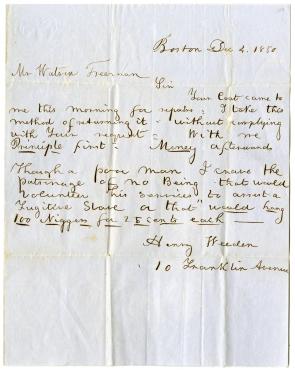 Boston Dec 4. 1850
Mr Watson Freeman
Sir
Your Coat came to
me this morning for repairs. I take this
method of returning it - without complying
with Your request. With me
Principle first - Money afterwards
Though a poor man I crave the
Patronage of no Being that would
Volunteer his services to arrest a
Fugitive Slave or that "would hang
100 Niggers for 25 cents each"
Henry Weeden
10 Franklin Avenue